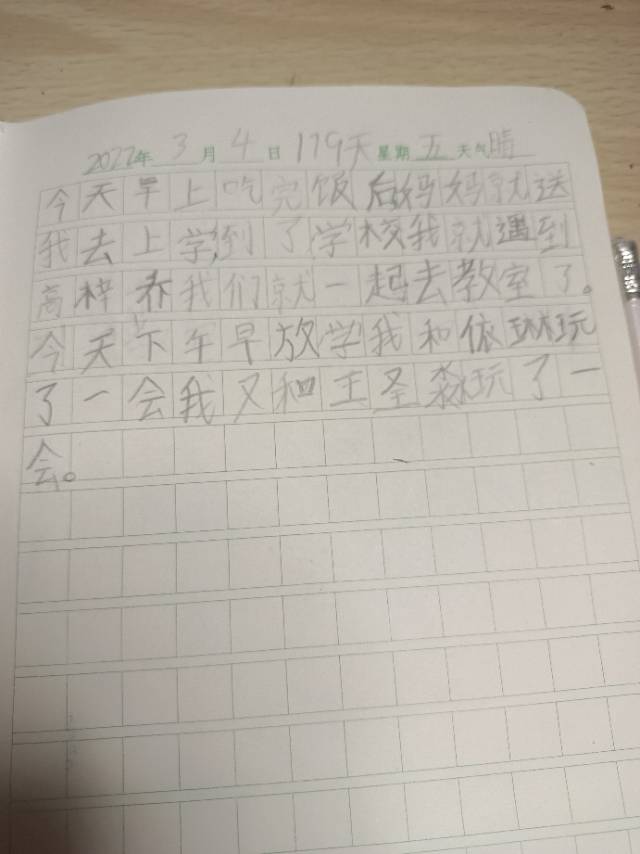 2022年 3 月 4 日 179天 星期 五 天气 晴
今天早上吃完饭后妈妈就送
我去上学,到了学校我就遇到
高梓乔我们就一起去教室了。
今天下午早放学我和依琳玩
了一会我又和王圣淼玩了一
会。